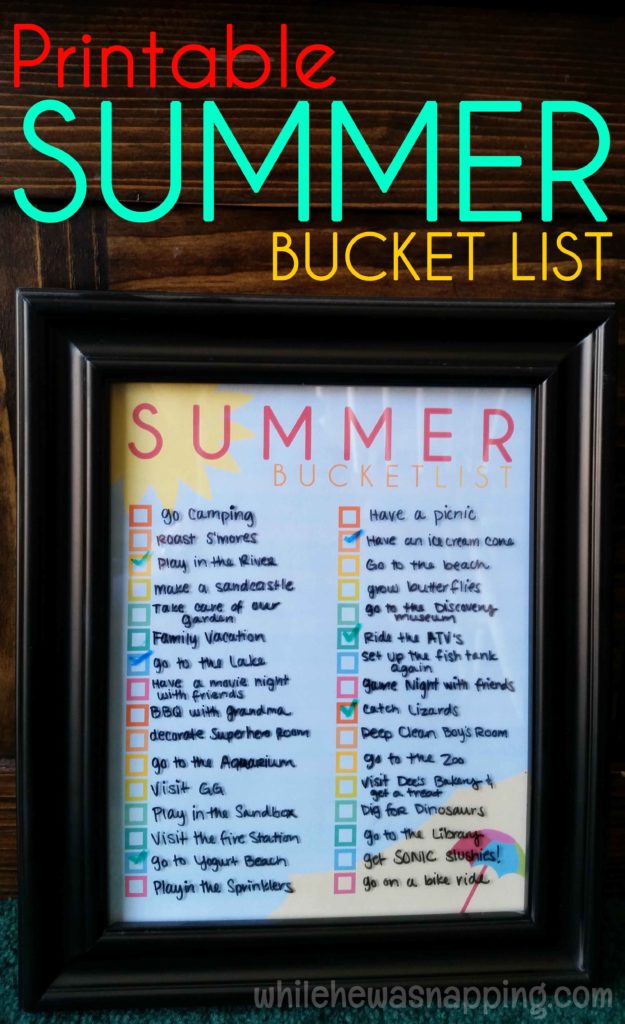 Printable
SUMMER
BUCKET LIST
SUMMER
BUCKETLIST
go camping
Roast S'mores
Play in the River
make a sandcastle
Take care of our
garden
Family Vacation
go to the Lake
Have a movie night
with friends
BBQ with grandma
decorate Superhero Room
go to the Aquarium
Visit GG
Play in the Sandbox
Visit the Fire Station
go to Yogurt Beach
Play in the Sprinklers
Have a picnic
Have an ice cream cone
Go to the beach
grow butterflies
go to the Discovery
museum
Ride the ATV's
set up the fish tank
again
game Night with friends
Catch Lizards
Deep Clean Boy's Room
go to the Zoo
Visit Dee's Bakery &
get a treat
Dig for Dinosaurs
go to the Library
get SONIC slushies!
go on a bike ride
whilehewasnapping.com